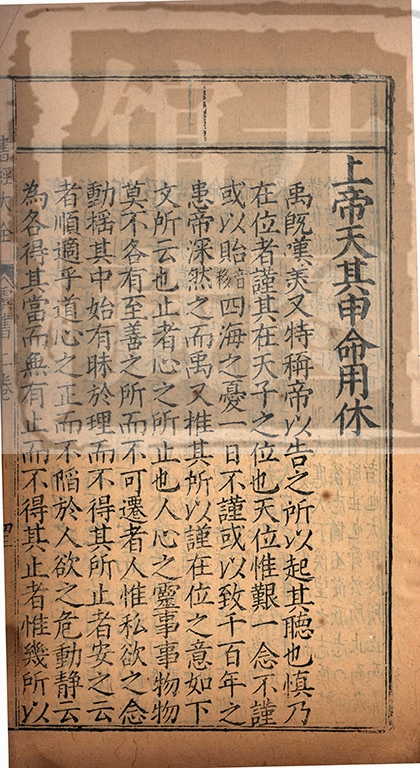 上帝天其申命用休
禹旣嘆美又特稱帝以告之所以起其聽也慎乃
在位者謹其在天子之位也天位惟艱一念不謹
或以貽音移四海之憂一日不謹或以致千百年之
患帝深然之而禹又推其所以謹在位之意如下
文所云也止者心之所止也人心之靈事事物物
莫不各有至善之所而不可遷者人惟私欲之念
動搖其中始有昧於理而不得其所止者安之云
者順適乎道心之正而不陷於人欲之危動靜云
為各得其當而無有止而不得其止者惟幾所以
書經大全 虞書二卷